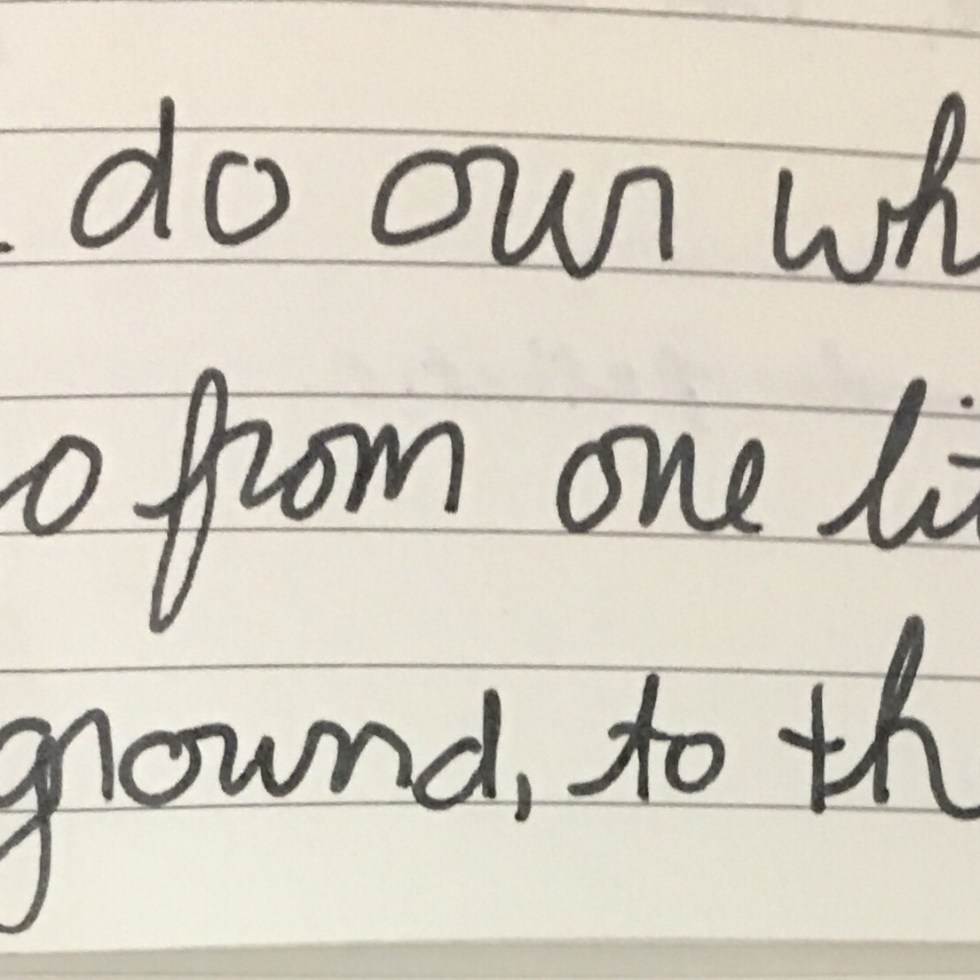 do our wh
o from one lit
ground, to th